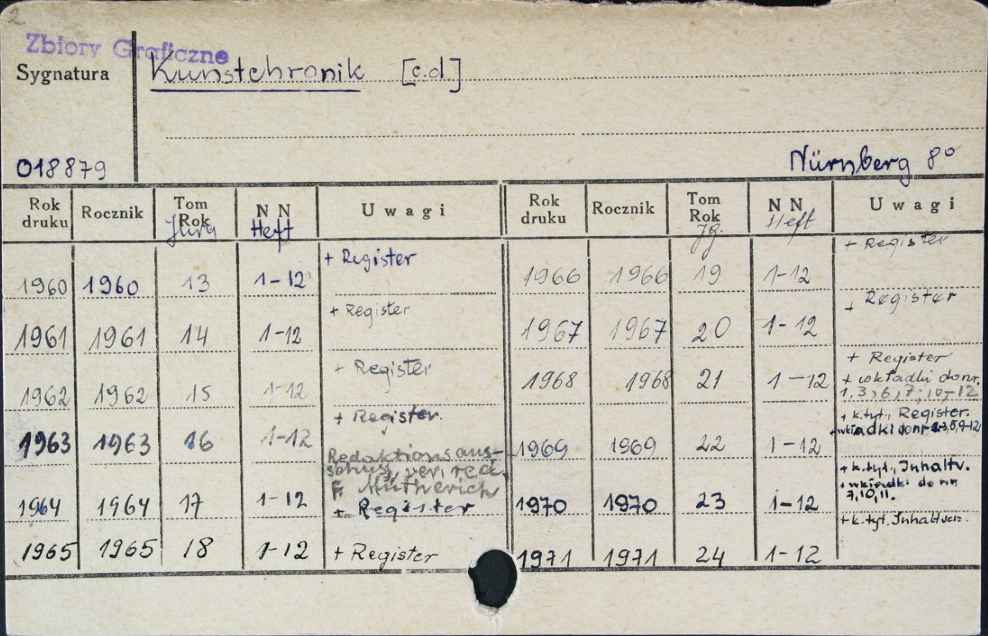 Zbiory Graficzne
Sygnatura
Kunstchronik [c.d.]
018879
Nürnberg 8°
Rok druku Rocznik Tom Rok Jhrg NN Heft Uwagi
1960 1960 13 1-12 + Register
1961 1961 14 1-12 + Register
1962 1962 15 1-12 + Register
1963 1963 16 1-12 + Register.
Redaktionsaus-
schuss, ver. red.
F. Mütherich
1964 1964 17 1-12 + Register
1965 1965 18 1-12 + Register
Rok druku Rocznik Tom Rok Jg. NN Heft Uwagi
1966 1966 19 1-12 + Register
1967 1967 20 1-12 + Register
1968 1968 21 1-12 + Register
+ wkładki do nr.
1,3,6,7,10-12
1969 1969 22 1-12 + k.tyt., Register.
+ wkładki do nr
1970 1970 23 1-12 + k.tyt., Inhaltv.
+ wkładki do nr
7,10,11.
1971 1971 24 1-12 + k.tyt. Inhaltver.